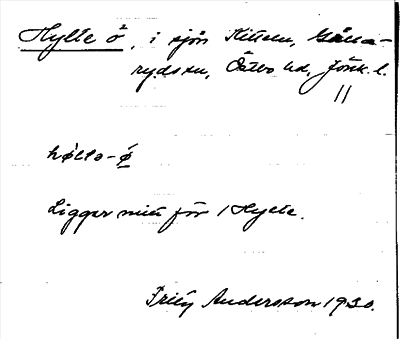 Hylte ö, i sjön Hitteln, Gålla-
rydssn, Östbo hd, Jönk. l.
11
hølta-ø
Ligger mitt för 1 Hylte.
Frity Andersson 1930.